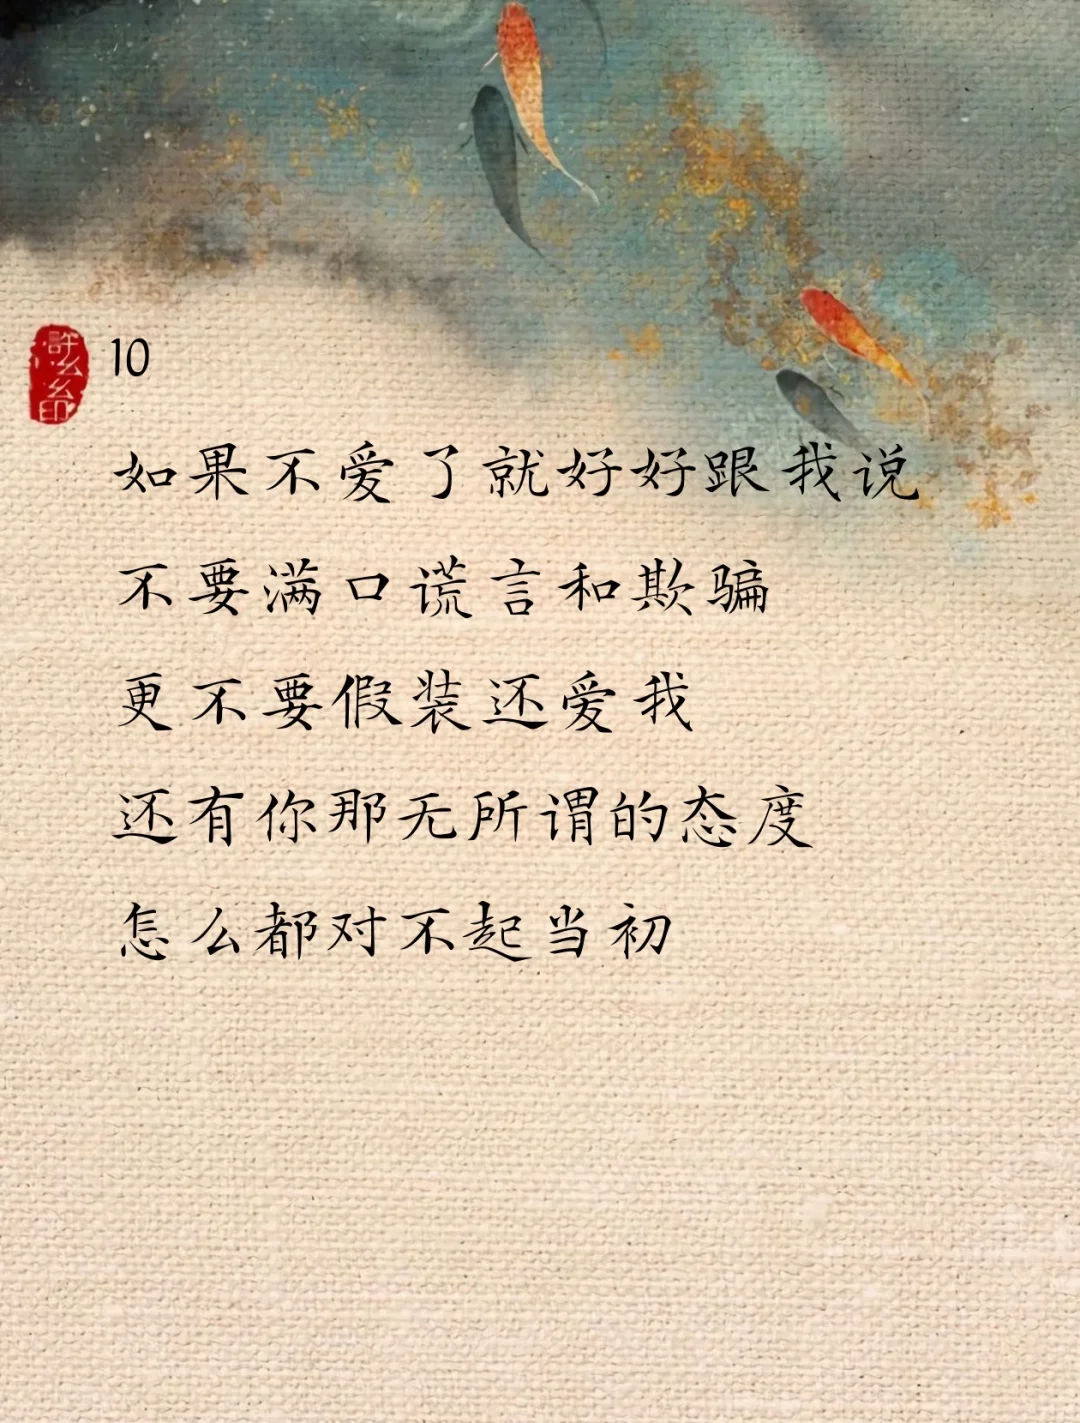 10
如果不爱了就好好跟我说
不要满口谎言和欺骗
更不要假装还爱我
还有你那无所谓的态度
怎么都对不起当初